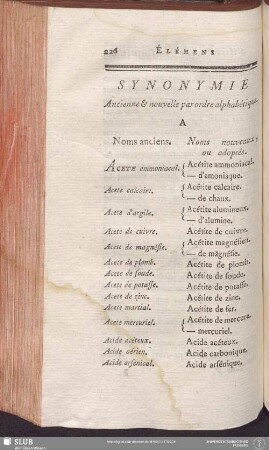 226 ÉLÉMENS
SYNONYMIE
Ancienne & nouvelle par ordre alphabétique.
A
Noms anciens. Noms nouveaux, ou adoptés.
ACETE ammoniacal. { Acétite ammoniacal.
— d'amoniaque.
Acete calcaire. { Acétite calcaire.
— de chaux.
Acete d'argile. { Acétite alumineux.
— d'alumine.
Acete de cuivre. Acétite de cuivre.
Acete de magnésie. { Acétite magnésien.
— de magnésie.
Acete de plomb. Acétite de plomb.
Acete de soude. Acétite de soude.
Acete de potasse. Acétite de potasse.
Acete de zinc. Acétite de zinc.
Acete martial. Acétite de fer.
Acete mercuriel. { Acétite de mercure.
— mercuriel.
Acide acéteux. Acide acéteux.
Acide aérien. Acide carbonique.
Acide arsénical. Acide arsénique.
SLUB
Wir führen Wissen.